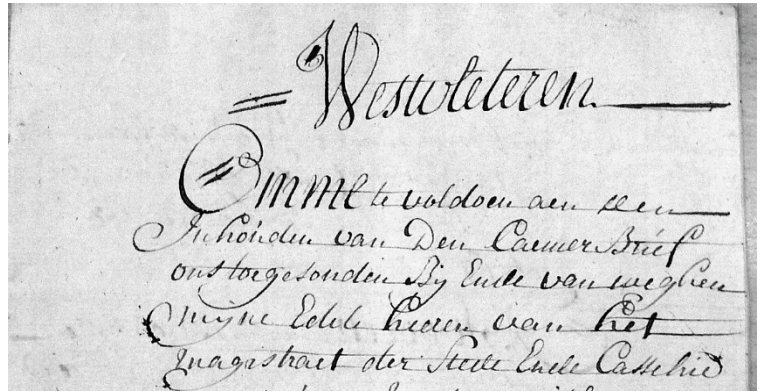 Westvleteren
Omme te voldoen aen den
Inhouden van Den Caemer Brief
ons toegesonden Bij Ende van weghen
mijne Edele heeren van het
magistraet der Stede Ende Casselrie